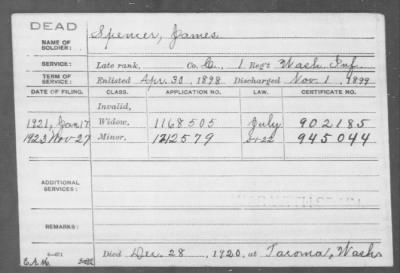 DEAD
NAME OF SOLDIER: Spencer, James
SERVICE: Late rank, Co. G, 1 Reg't Wash. Inf.
TERM OF SERVICE: Enlisted Apr. 30, 1898 Discharged Nov. 1, 1899
DATE OF FILING. CLASS. APPLICATION NO. LAW. CERTIFICATE NO.
Invalid,
1921, Jan 17 Widow, 1168505 July 902185
1923 Nov-27 Minor, 1212579 945044
ADDITIONAL SERVICES:
REMARKS:
Died Dec. 28, 1920, at Tacoma, Wash